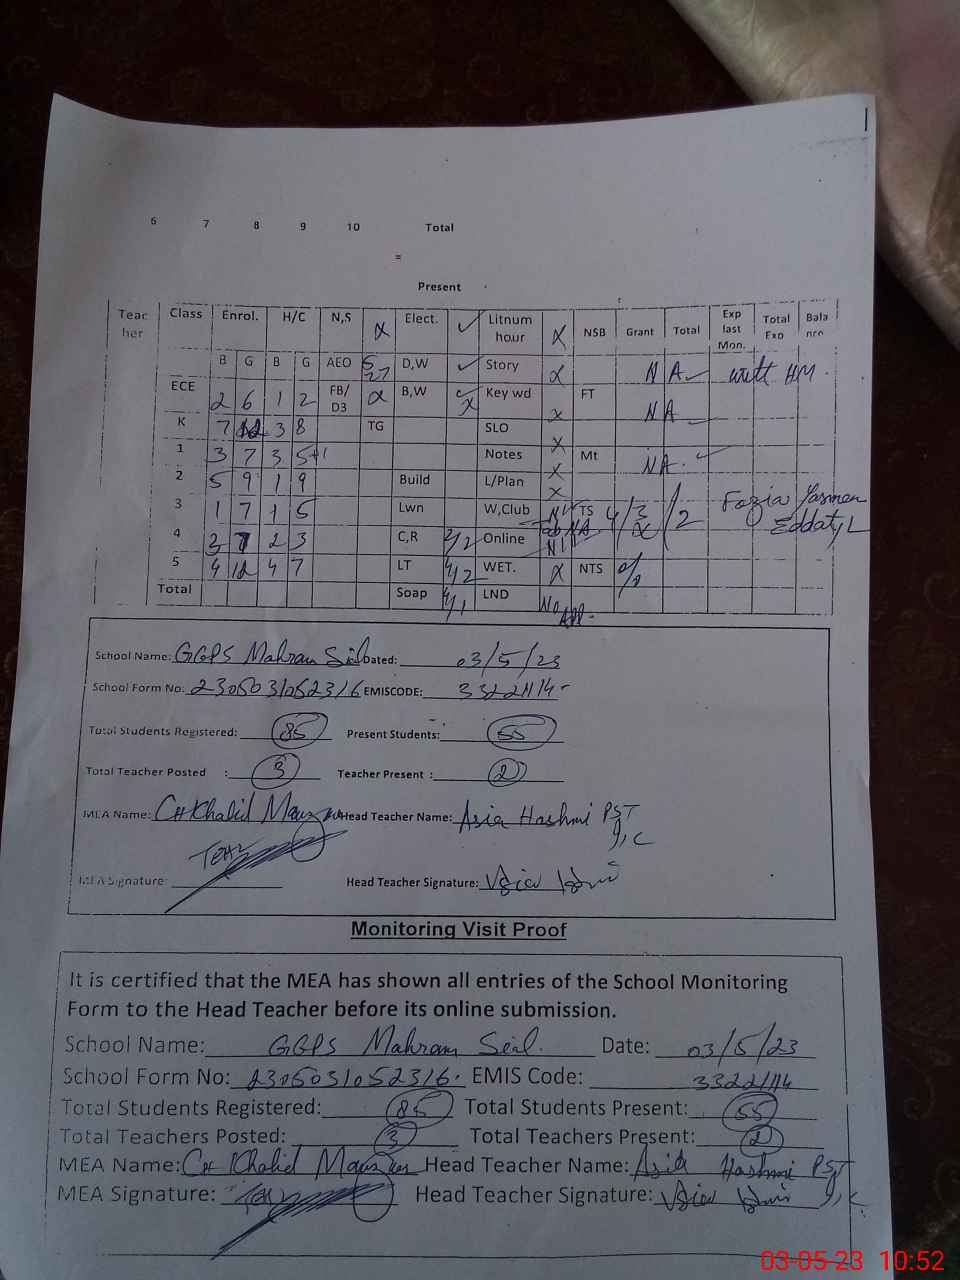 6 7 8 9 10 Total
=
Present
Teac her Class Enrol. H/C N,S x Elect. ✓ Litnum hour x NSB Grant Total Exp last Mon. Total Exp Bala nce
B G B G AEO 5/27 D,W ✓ Story x NA ✓ HM.
ECE 2 6 1 2 FB/ D3 x B,W x Key wd x FT NA
K 7 12 3 8 TG SLO x
1 3 7 3 5+1 Notes x Mt NA. ✓
2 5 9 1 9 Build L/Plan x
3 1 7 1 5 Lwn W,Club Nil TS 4/3 /2 Fozia Yasmen
4 3 7 2 3 C,R 2/2 Online Nil
5 4 12 4 7 LT 4/2 WET. x NTS 0/0
Total Soap 4/1 LND No App.
School Name: GGPS Mahram Sial Dated: 03/5/23
School Form No: 2305031052316 EMISCODE: 33221114
Total Students Registered: 85 Present Students: 55
Total Teacher Posted : 3 Teacher Present : 2
MEA Name: CH Khalid Head Teacher Name: Asia Hashmi PST
I/C
MEA Signature: Head Teacher Signature:
Monitoring Visit Proof
It is certified that the MEA has shown all entries of the School Monitoring
Form to the Head Teacher before its online submission.
School Name: GGPS Mahram Sial. Date: 03/5/23
School Form No: 2305031052316. EMIS Code: 33221114
Total Students Registered: 85 Total Students Present: 55
Total Teachers Posted: 3 Total Teachers Present: 2
MEA Name: CH Khalid Head Teacher Name: Asia Hashmi PST
MEA Signature: Head Teacher Signature: I/C
03-05-23 10:52